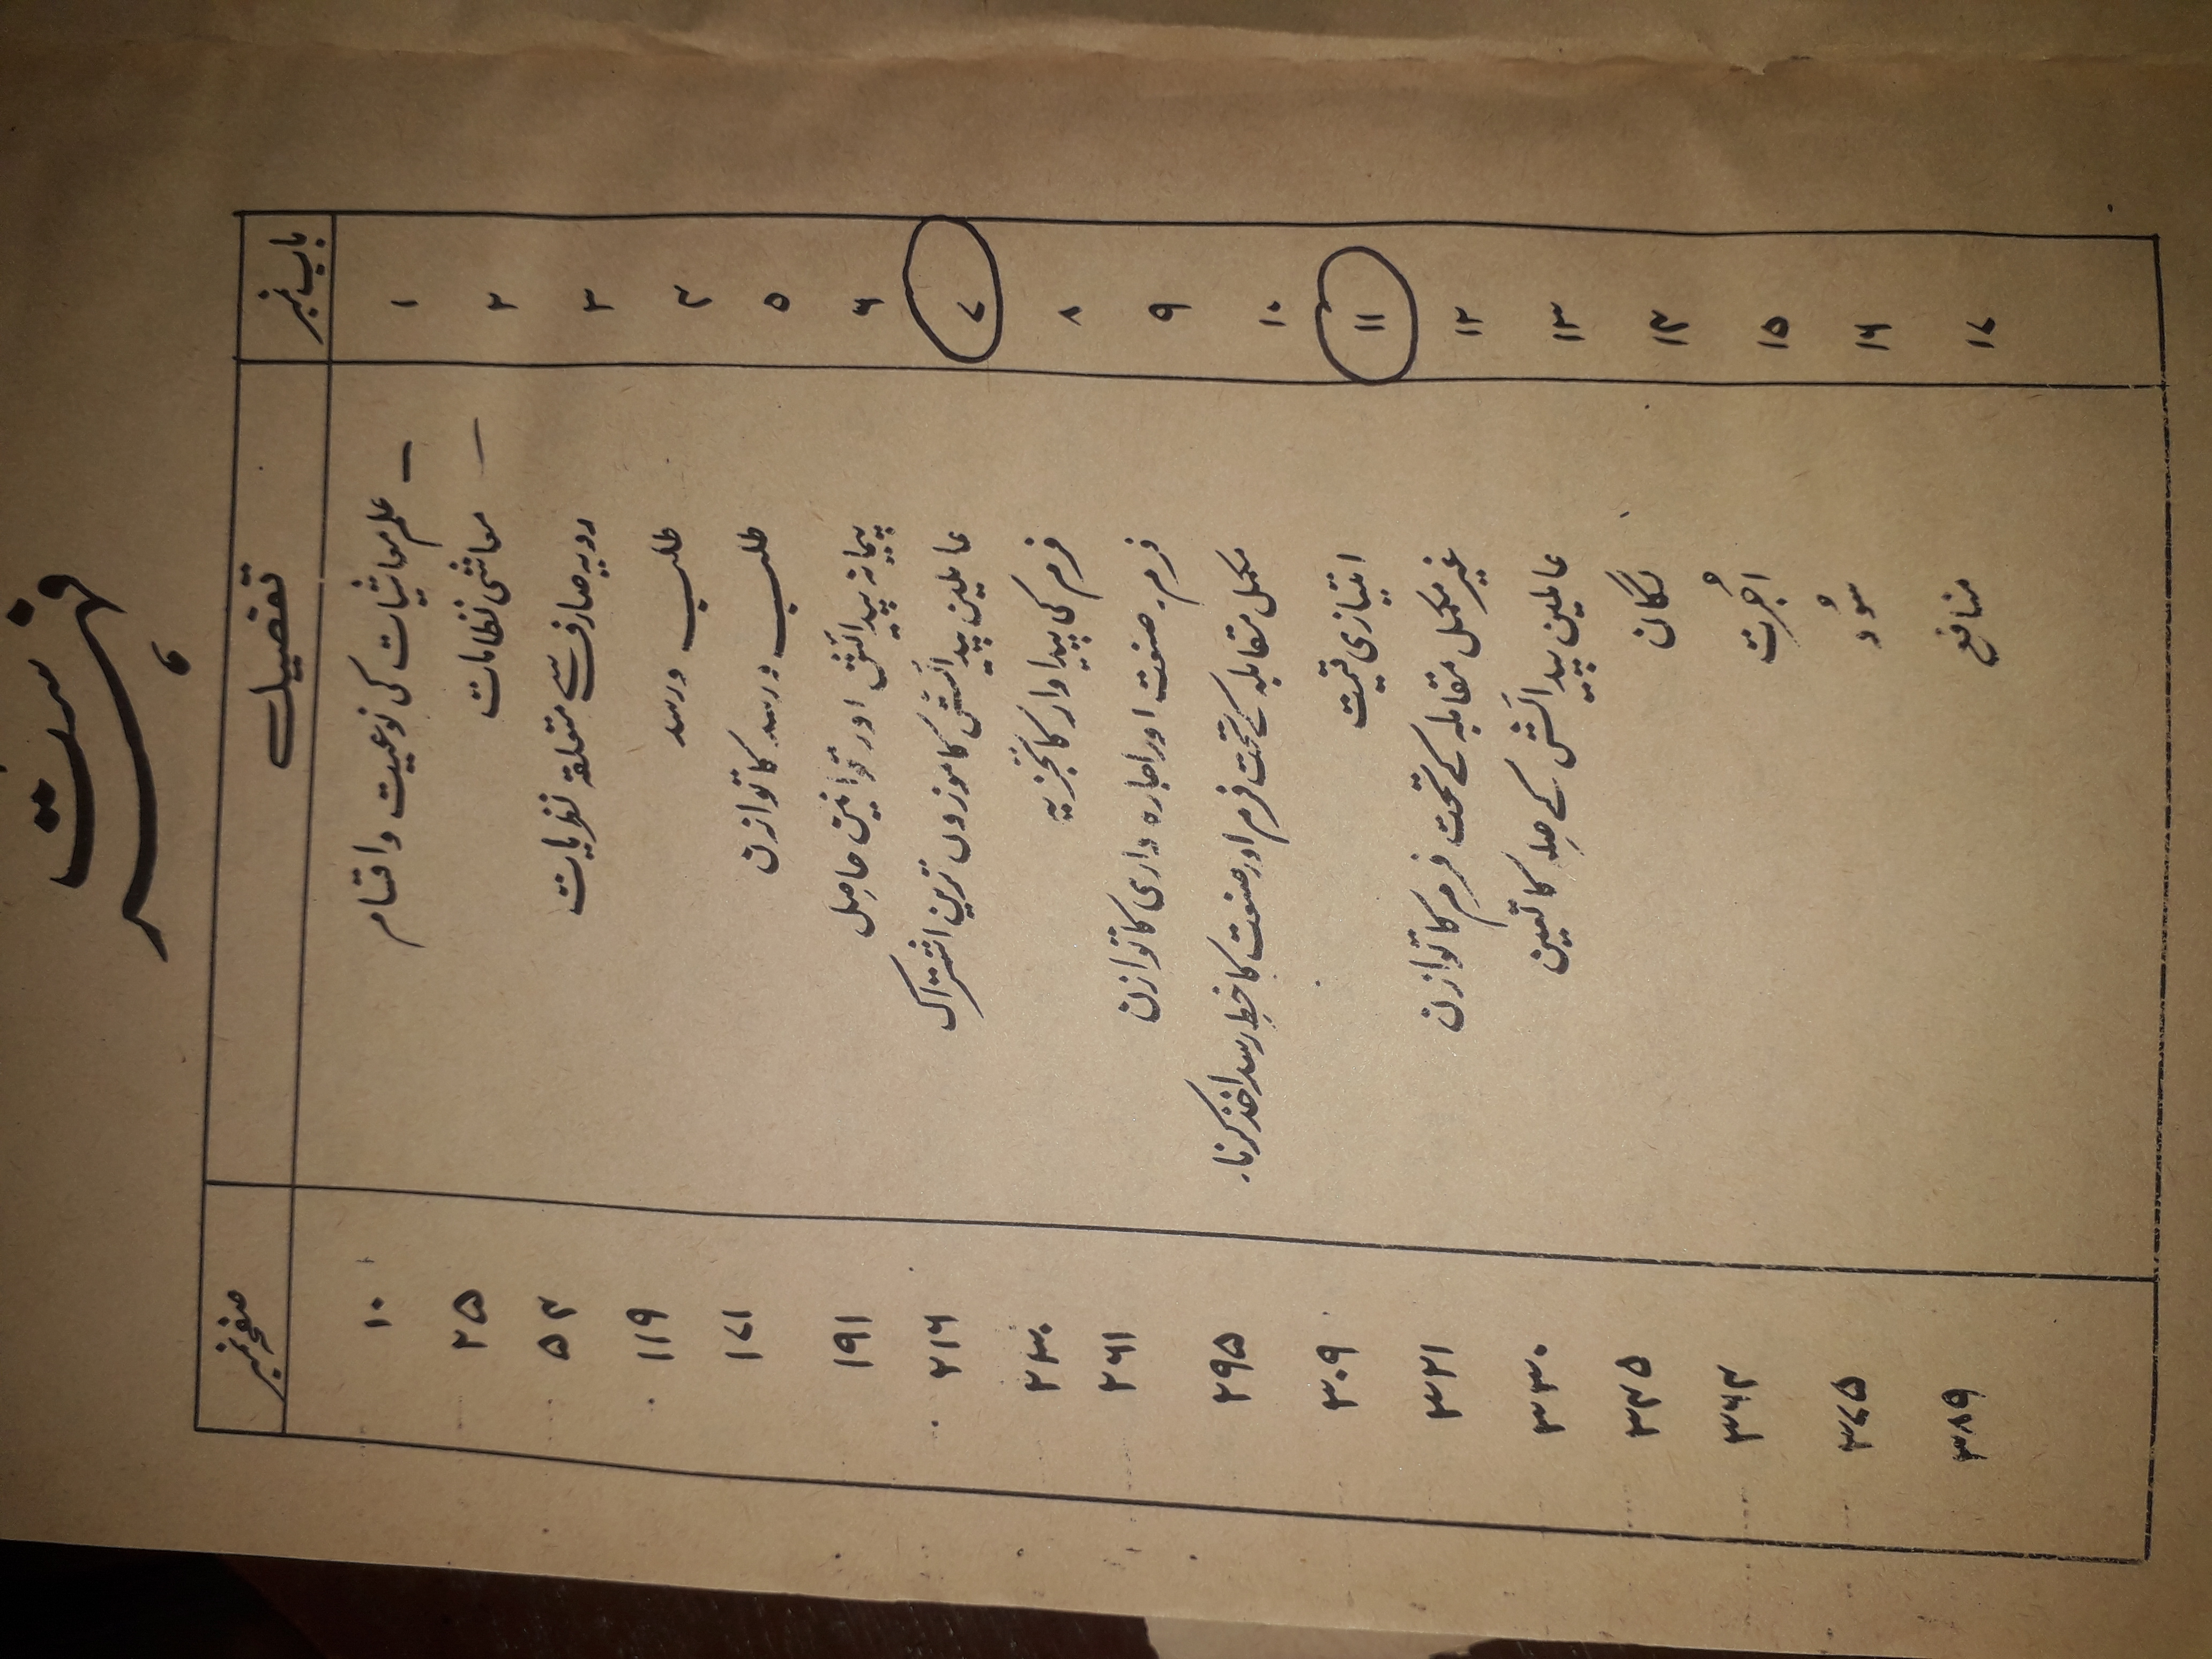 فہرست
باب نمبر تفصیل صفحہ نمبر
۱ علم معاشیات کی نوعیت و اقسام ۱۰
۲ معاشی نظامات ۲۵
۳ رویہ صارف سے متعلقہ نظریات ۵۴
۴ طلب و رسد ۱۱۹
۵ طلب و رسد کا توازن ۱۷۱
۶ پیمانہ پیدائش اور قوانین حاصل ۱۹۱
۷ عاملین پیدائش کا موزوں ترین اشتراک ۲۱۶
۸ فرم کی پیداوار کا تجزیہ ۲۳۰
۹ فرم۔ صنعت اور اجارہ داری کا توازن ۲۶۱
۱۰ مکمل مقابلہ کے تحت فرم اور صنعت کا خطِ رسد اخذ کرنا۔ ۲۹۵
۱۱ امتیازی قیمت ۳۰۹
۱۲ غیر مکمل مقابلہ کے تحت فرم کا توازن ۳۲۱
۱۳ عاملین پیدائش کے صِلہ کا تعین ۳۳۰
۱۴ لگان ۳۴۵
۱۵ اُجرت ۳۶۴
۱۶ سُود ۳۷۵
۱۷ منافع ۳۸۹